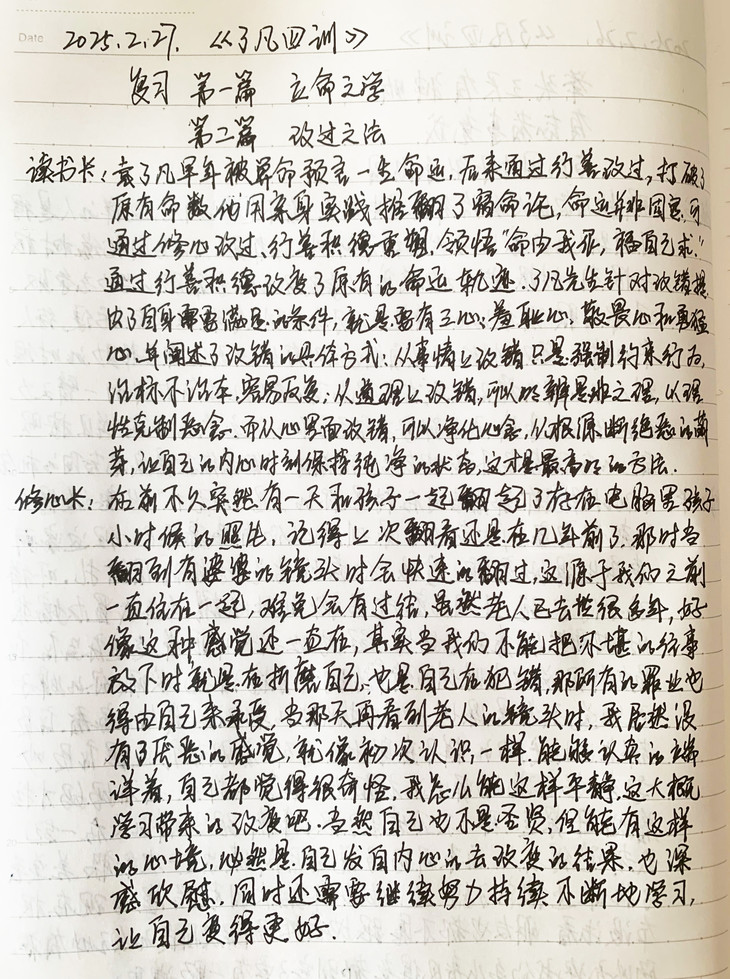 Date 2025.2.27. 《了凡四训》
复习 第一篇 立命之学
第二篇 改过之法
读书长：袁了凡早年被算命预言一生命运，后来通过行善改过，打破了
原有命数他用亲身实践推翻了宿命论，命运并非固定，可
通过修心改过、行善积德重塑，领悟“命由我作，福自己求。”
通过行善积德改变了原有的命运轨迹.了凡先生针对改错提
出了自身需要满足的条件，就是要有三心：羞耻心、敬畏心和勇猛
心.并阐述了改错的具体方式：从事情上改错只是强制约束行为，
治标不治本，容易反复；从道理上改错，可以明辨是非之理，以理
性克制恶念.而从心里面改错，可以净化心念，从根源断绝恶的萌
芽，让自己的内心时刻保持纯净的状态，这才是最高明的方法.
修心长：在前不久突然有一天和孩子一起翻起了存在电脑里孩子
小时候的照片，记得上次翻看还是在几年前了，那时当
翻到有婆婆的镜头时会快速的翻过，这源于我们之前
一直住在一起，难免会有过结，虽然老人已去世很多年，好
像这种感觉还一直在，其实当我们不能把不堪的往事
放下时就是在折磨自己，也是自己在犯错，那所有的罪业也
得由自己来承受，当那天再看到老人的镜头时，我居然没
有了厌恶的感觉，就像初次认识一样.能够认真的端
详着，自己都觉得很奇怪，我怎么能这样平静，这大概
学习带来的改变吧.当然自己也不是圣贤，但能有这样
的心境，必然是自己发自内心的去改变的结果，也深
感欣慰.同时还需要继续努力持续不断地学习，
让自己变得更好.